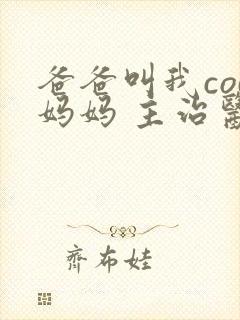 爸爸叫我co
妈妈 主治醫
齊布娃